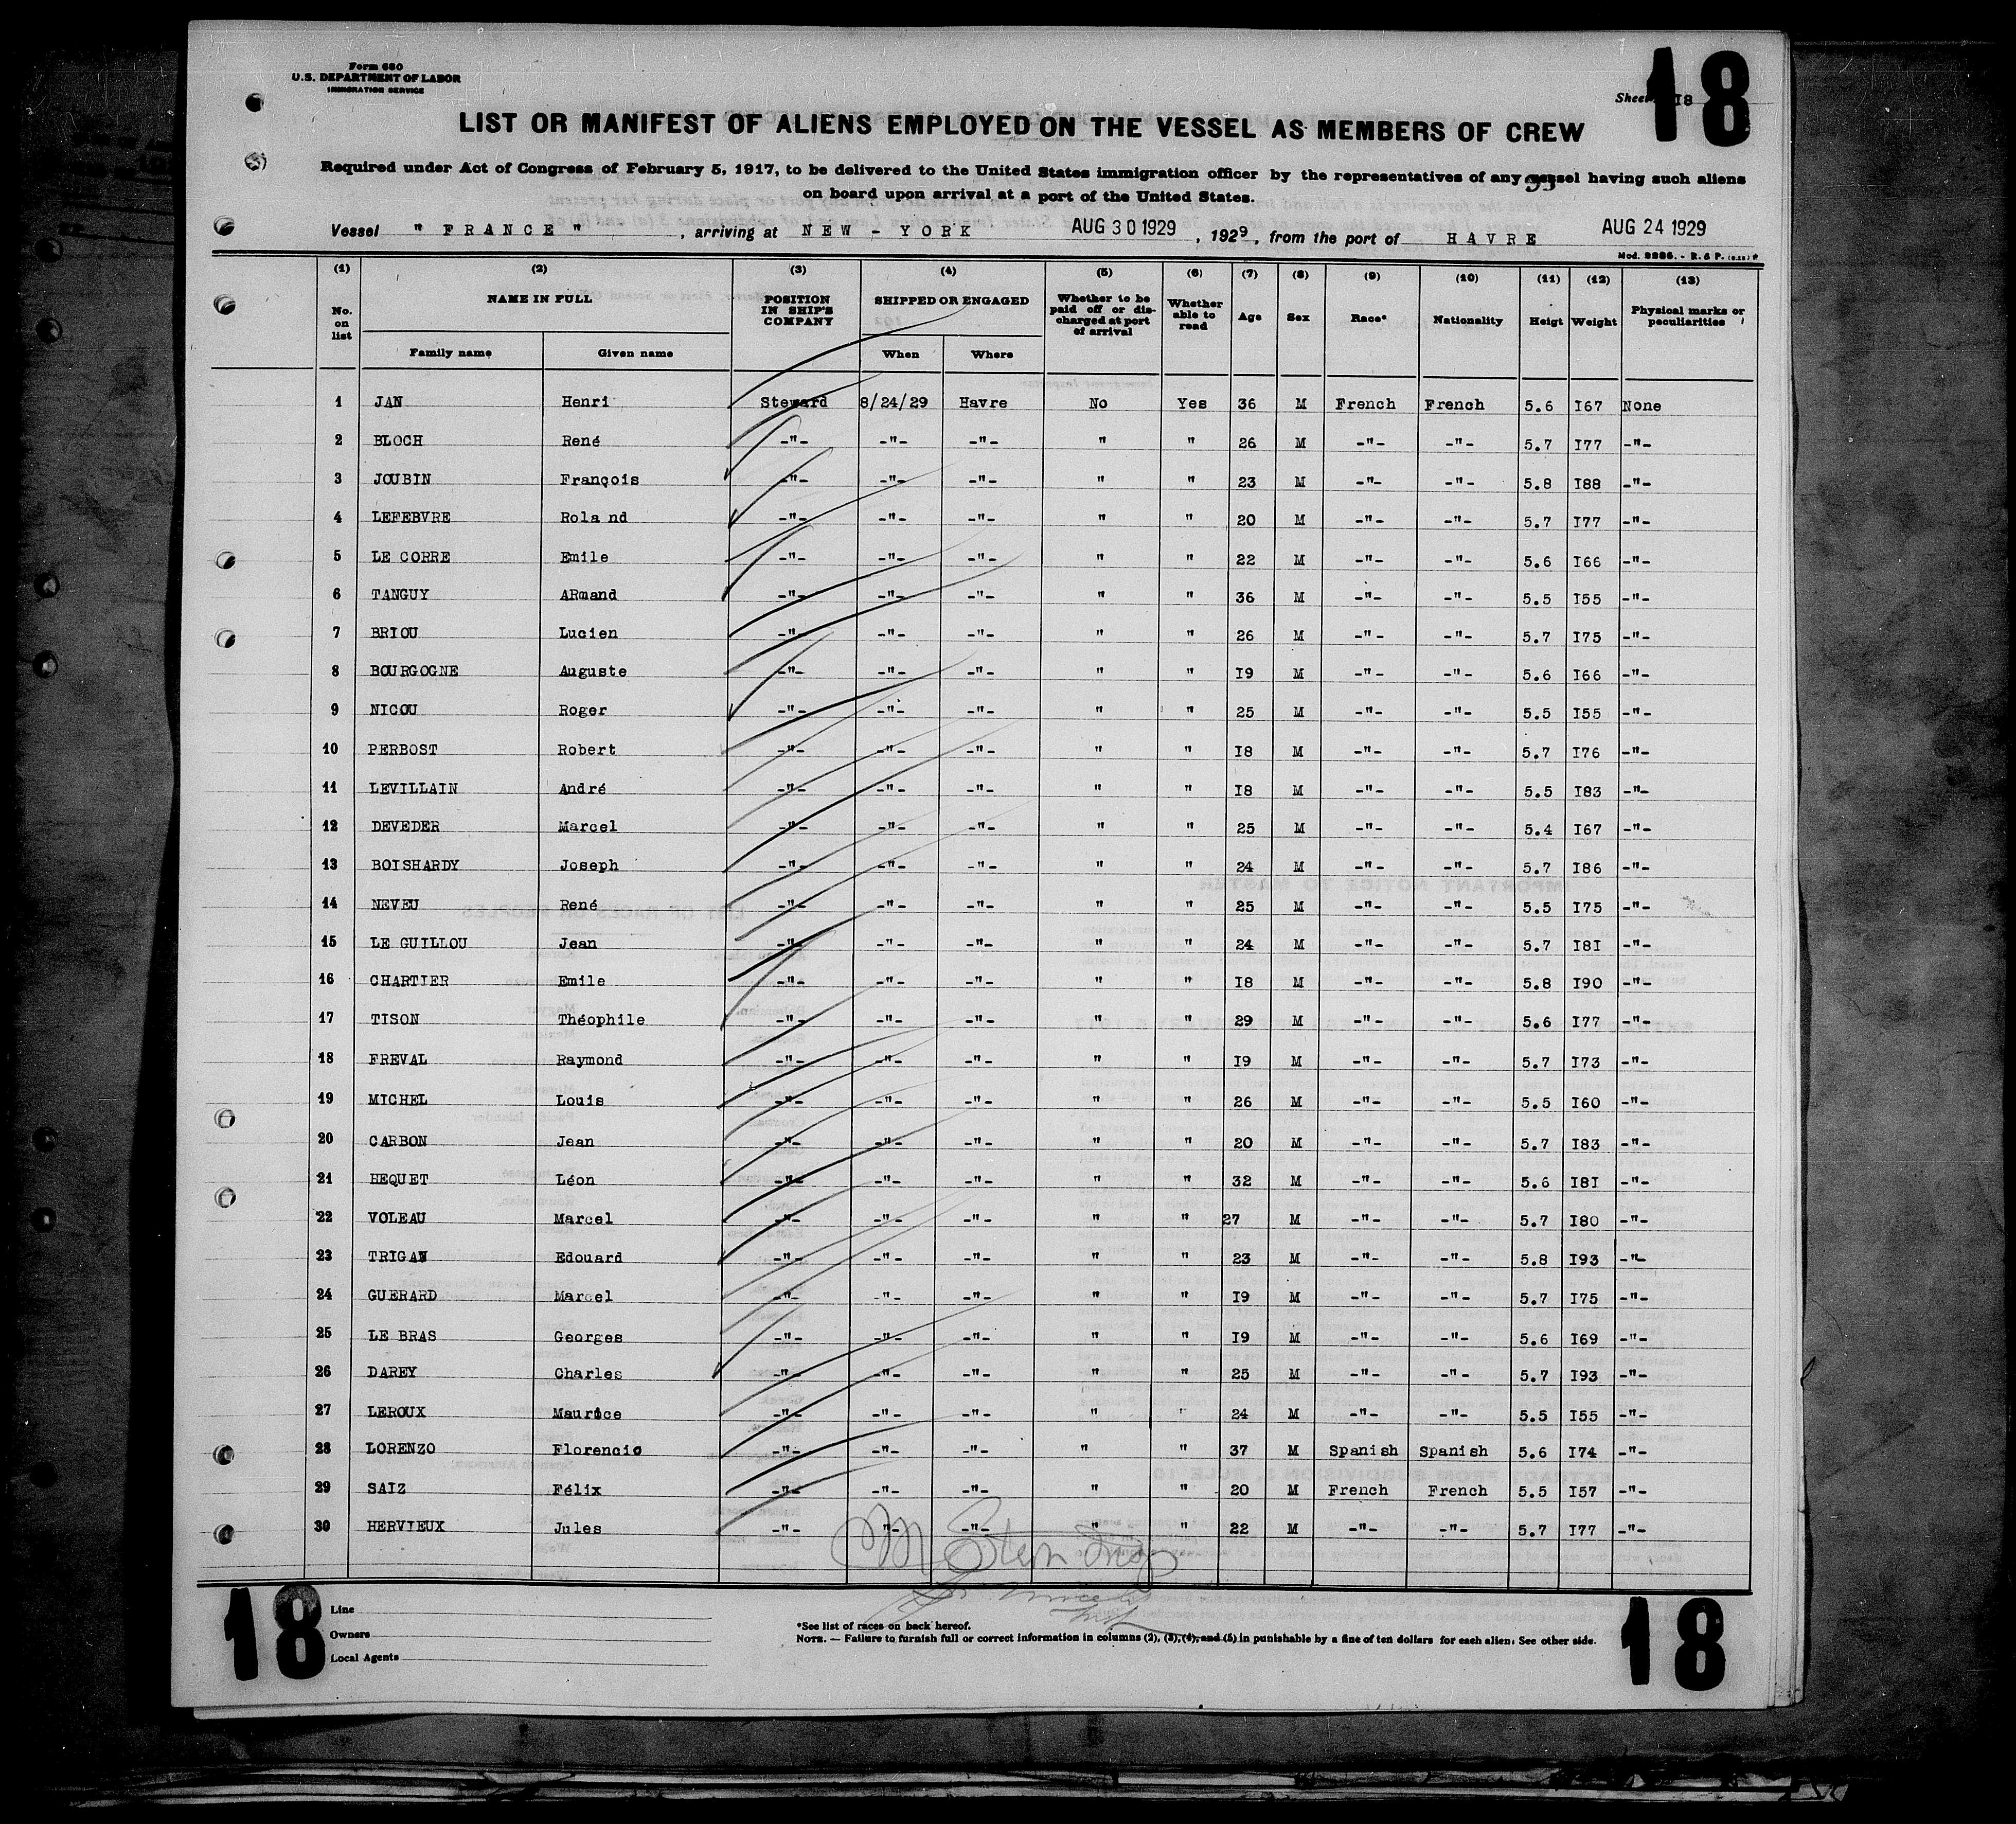 Form 680
U.S. DEPARTMENT OF LABOR
IMMIGRATION SERVICE
18
Sheet I8
LIST OR MANIFEST OF ALIENS EMPLOYED ON THE VESSEL AS MEMBERS OF CREW
Required under Act of Congress of February 5, 1917, to be delivered to the United States immigration officer by the representatives of any vessel having such aliens
on board upon arrival at a port of the United States.
Vessel " FRANCE " , arriving at NEW - YORK AUG 30 1929 , 1929, from the port of HAVRE AUG 24 1929
Mod. 2286. - R. & P.
(1) (2) (3) (4) (5) (6) (7) (8) (9) (10) (11) (12) (13)
No. on list NAME IN FULL Family name Given name POSITION IN SHIP'S COMPANY SHIPPED OR ENGAGED When Where Whether to be paid off or discharged at port of arrival Whether able to read Age Sex Race* Nationality Heigt Weight Physical marks or peculiarities
1 JAN Henri Steward 8/24/29 Havre No Yes 36 M French French 5.6 I67 None
2 BLOCH René -"- -"- -"- " " 26 M -"- -"- 5.7 I77 -"-
3 JOUBIN François -"- -"- -"- " " 23 M -"- -"- 5.8 I88 -"-
4 LEFEBVRE Roland -"- -"- -"- " " 20 M -"- -"- 5.7 I77 -"-
5 LE CORRE Emile -"- -"- -"- " " 22 M -"- -"- 5.6 I66 -"-
6 TANGUY ARmand -"- -"- -"- " " 36 M -"- -"- 5.5 I55 -"-
7 BRIOU Lucien -"- -"- -"- " " 26 M -"- -"- 5.7 I75 -"-
8 BOURGOGNE Auguste -"- -"- -"- " " I9 M -"- -"- 5.6 I66 -"-
9 NICOU Roger -"- -"- -"- " " 25 M -"- -"- 5.5 I55 -"-
10 PERBOST Robert -"- -"- -"- " " I8 M -"- -"- 5.7 I76 -"-
11 LEVILLAIN André -"- -"- -"- " " I8 M -"- -"- 5.5 I83 -"-
12 DEVEDER Marcel -"- -"- -"- " " 25 M -"- -"- 5.4 I67 -"-
13 BOISHARDY Joseph -"- -"- -"- " " 24 M -"- -"- 5.7 I86 -"-
14 NEVEU René -"- -"- -"- " " 25 M -"- -"- 5.5 I75 -"-
15 LE GUILLOU Jean -"- -"- -"- " " 24 M -"- -"- 5.7 I8I -"-
16 CHARTIER Emile -"- -"- -"- " " I8 M -"- -"- 5.8 I90 -"-
17 TISON Théophile -"- -"- -"- " " 29 M -"- -"- 5.6 I77 -"-
18 FREVAL Raymond -"- -"- -"- " " I9 M -"- -"- 5.7 I73 -"-
19 MICHEL Louis -"- -"- -"- " " 26 M -"- -"- 5.5 I60 -"-
20 CARBON Jean -"- -"- -"- " " 20 M -"- -"- 5.7 I83 -"-
21 HEQUET Léon -"- -"- -"- " " 32 M -"- -"- 5.6 I8I -"-
22 VOLEAU Marcel -"- -"- -"- " " 27 M -"- -"- 5.7 I80 -"-
23 TRIGAN Edouard -"- -"- -"- " " 23 M -"- -"- 5.8 I93 -"-
24 GUERARD Marcel -"- -"- -"- " " I9 M -"- -"- 5.7 I75 -"-
25 LE BRAS Georges -"- -"- -"- " " I9 M -"- -"- 5.6 I69 -"-
26 DAREY Charles -"- -"- -"- " " 25 M -"- -"- 5.7 I93 -"-
27 LEROUX Maurice -"- -"- -"- " " 24 M -"- -"- 5.5 I55 -"-
28 LORENZO Florencio -"- -"- -"- " " 37 M Spanish Spanish 5.6 I74 -"-
29 SAIZ Félix -"- -"- -"- " " 20 M French French 5.5 I57 -"-
30 HERVIEUX Jules -"- "- -"- " " 22 M -"- -"- 5.7 I77 -"-
18
Line
Owners
Local Agents
*See list of races on back hereof.
NOTE. — Failure to furnish full or correct information in columns (2), (3), (4), and (5) in punishable by a fine of ten dollars for each alien. See other side.
18